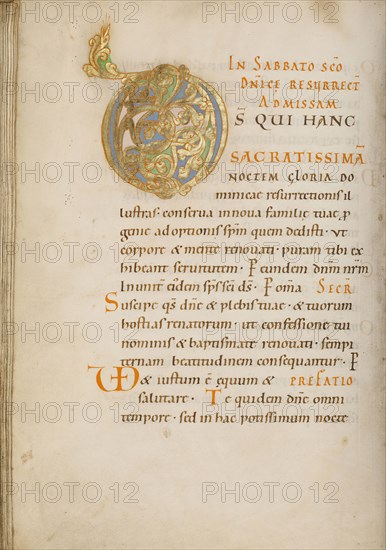 IN SABBATO SCO
DNICE RESURRECT
AD MISSAM
DS QUI HANC
SACRATISSIMA
NOCTEM GLORIA DO
minicae resurrectionis il
lustras· conserua in noua familię tuae· p
genie adoptionis spm quem dedisti· ut
corpore & mente renouati· puram tibi ex
hibeant seruitutem· P eundem dnm nrm
In unit eiusdem sps sci ds· P oma SECR
Suscipe qs dne & plebis tuae· & tuorum
hostias renatorum· ut confessione tui
nominis & baptismate renouati· sempi
ternam beatitudinem consequantur· P
VD & iustum ē equum & PREFATIO
salutare· Te quidem dne omni
tempore· sed in hac potissimum nocte
PHOTO 12